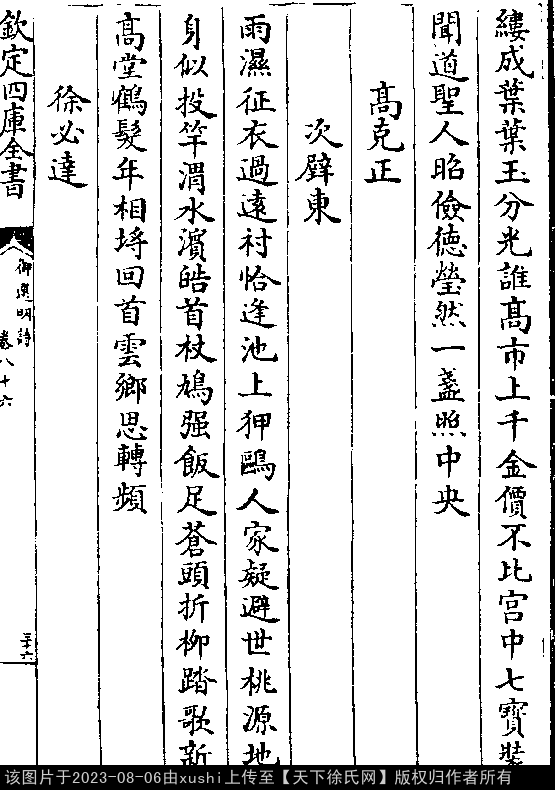 縷成葉葉玉分光誰髙市上千金價不比宫中七寶装
聞道聖人昭儉徳瑩然一盞照中央
髙克正
次壁東
雨濕征衣過逺村恰逢池上狎鷗人家疑避世桃源地
身似投竿渭水濵皓首杖鳩强飯足蒼頭折柳踏歌新
髙堂鶴髮年相埓回首雲鄉思轉頻
徐必達
欽定四庫全書
御選明詩
卷八十六
三十六
该图片于2023-08-06由xushi上传至【天下徐氏网】版权归作者所有